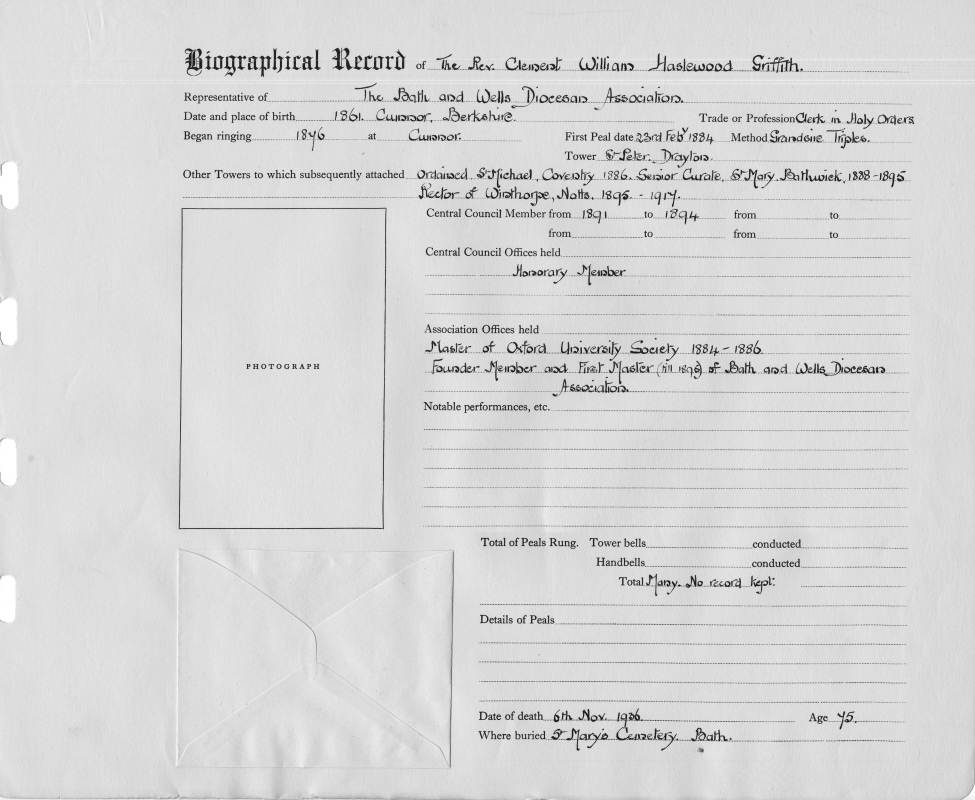 Biographical Record of The Rev. Clement William Haslewood Griffith.
Representative of The Bath and Wells Diocesan Association.
Date and place of birth 1861. Cumnor, Berkshire. Trade or Profession Clerk in Holy Orders
Began ringing 1876 at Cumnor. First Peal date 23rd Feby 1884 Method Grandsire Triples.
Tower St Peter. Drayton.
Other Towers to which subsequently attached Ordained St Michael, Coventry 1886. Senior Curate, St Mary. Bathwick, 1888-1895
Rector of Winthorpe, Notts. 1895. - 1917.
Central Council Member from 1891 to 1894 from to
from to from to
Central Council Offices held
Honorary Member
Association Offices held
Master of Oxford University Society 1884-1886
Founder Member and First Master (till 1895) of Bath and Wells Diocesan
Association.
PHOTOGRAPH
Notable performances, etc.
Total of Peals Rung. Tower bells conducted
Handbells conducted
Total Many. No record kept.
Details of Peals
Date of death 6th Nov. 1936. Age 75.
Where buried St Mary's Cemetery. Bath.